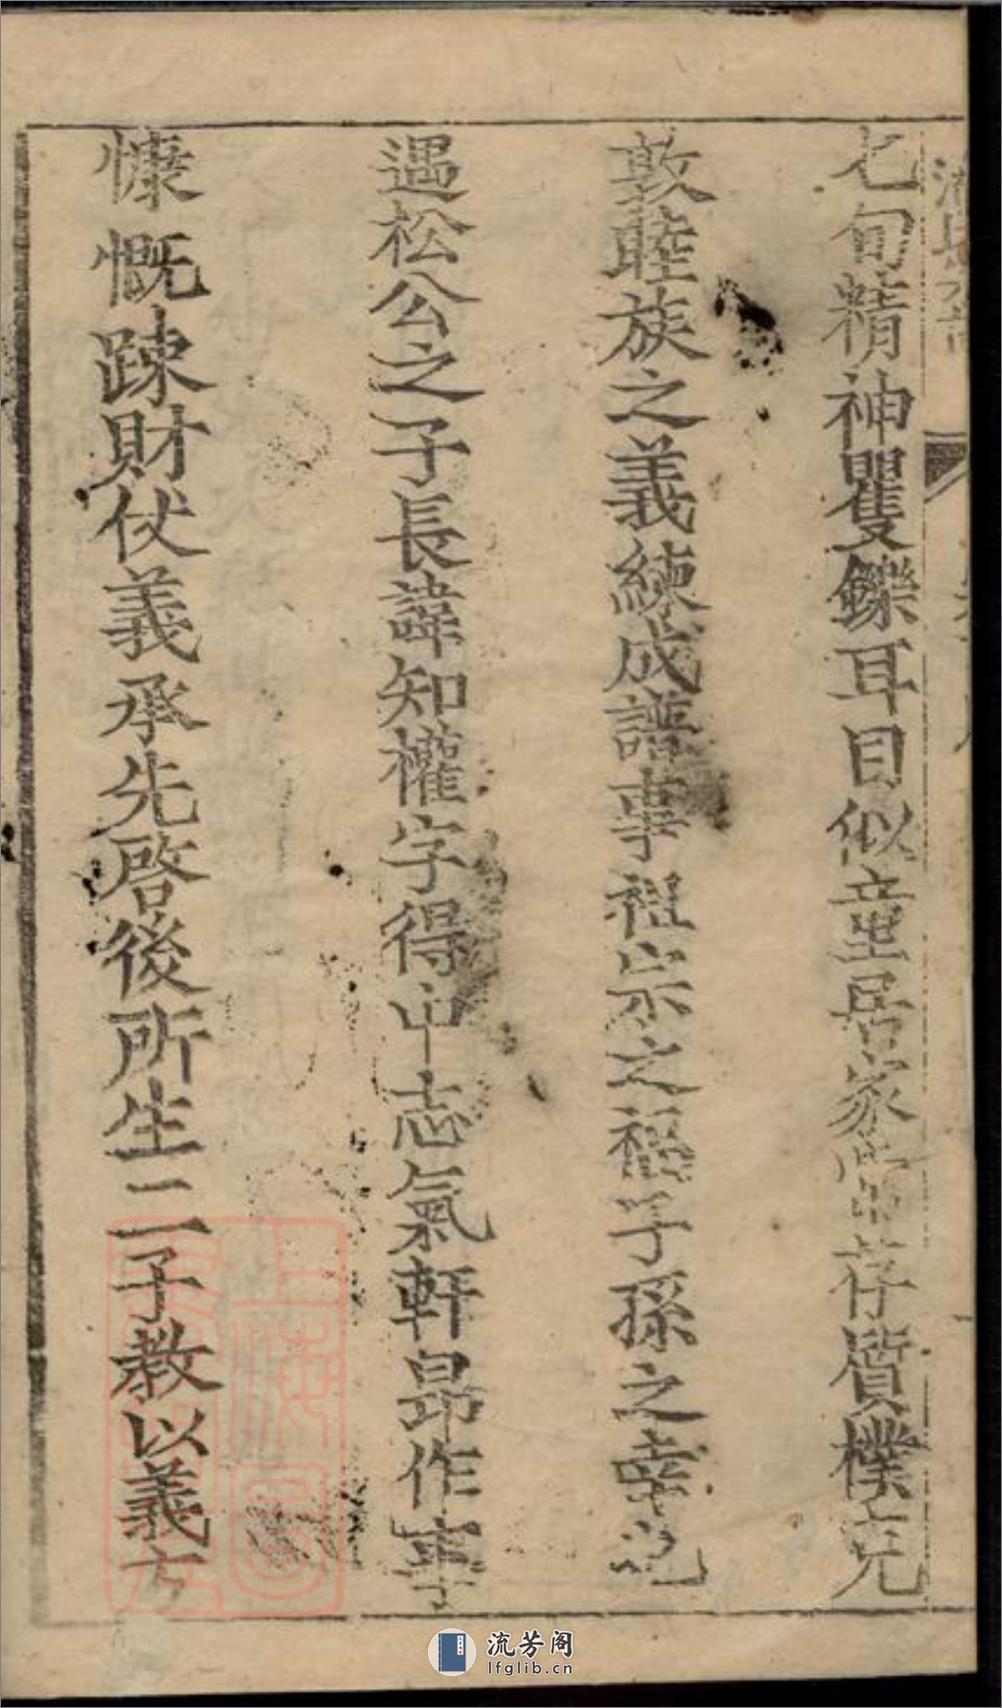 七旬精神矍鑠耳目似童居家常存質樸克
敦睦族之義練成譜事祖宗之福子孫之幸
遇松公之子長諱知權字得中志氣軒昂作事
慷慨踈財仗義承先啓後所生二子教以義方
流芳阁
lfglib.cn